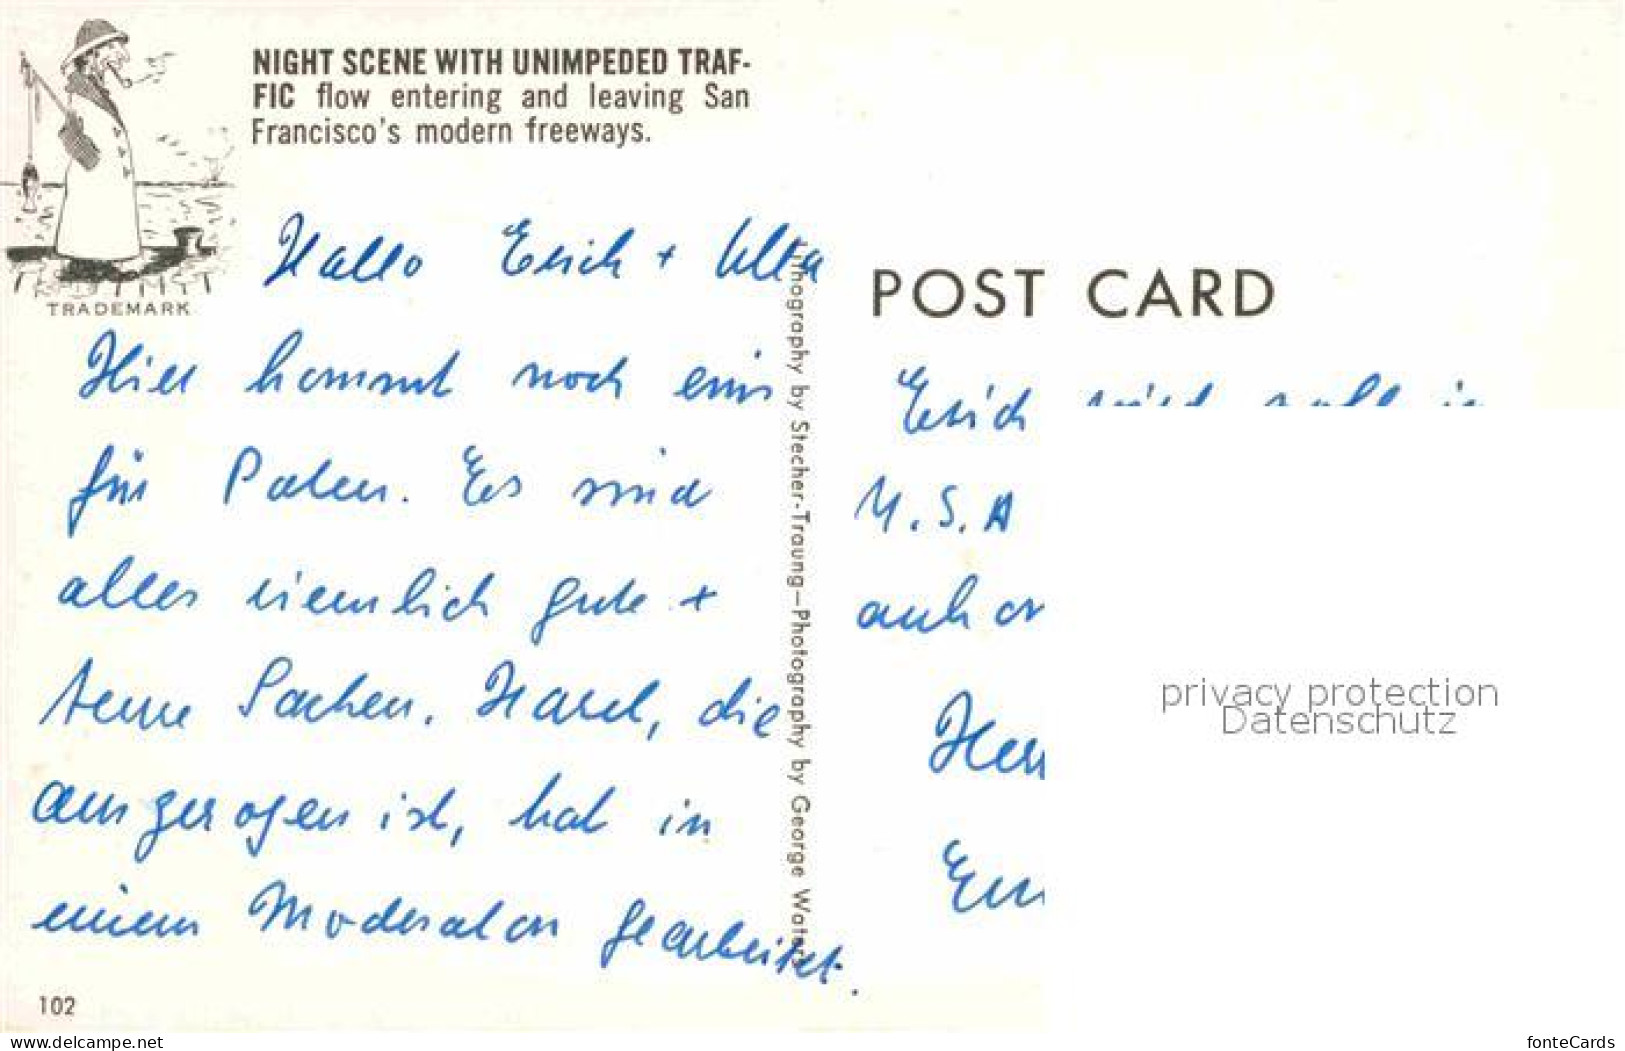 NIGHT SCENE WITH UNIMPEDED TRAF-
FIC flow entering and leaving San
Francisco's modern freeways.
TRADEMARK
Hallo Erich + Ulla
Hier kommt noch eins
für Polen. Es sind
alles ziemlich gute +
teure Sachen. Harel, die
ausgezogen ist, hat in
einem Modesalon gearbeitet.
102
Lithography by Stecher-Traung—Photography by George Waters
POST CARD
Erich wird
U.S.A
auch
privacy protection
Datenschutz
www.delcampe.net
fonteCards